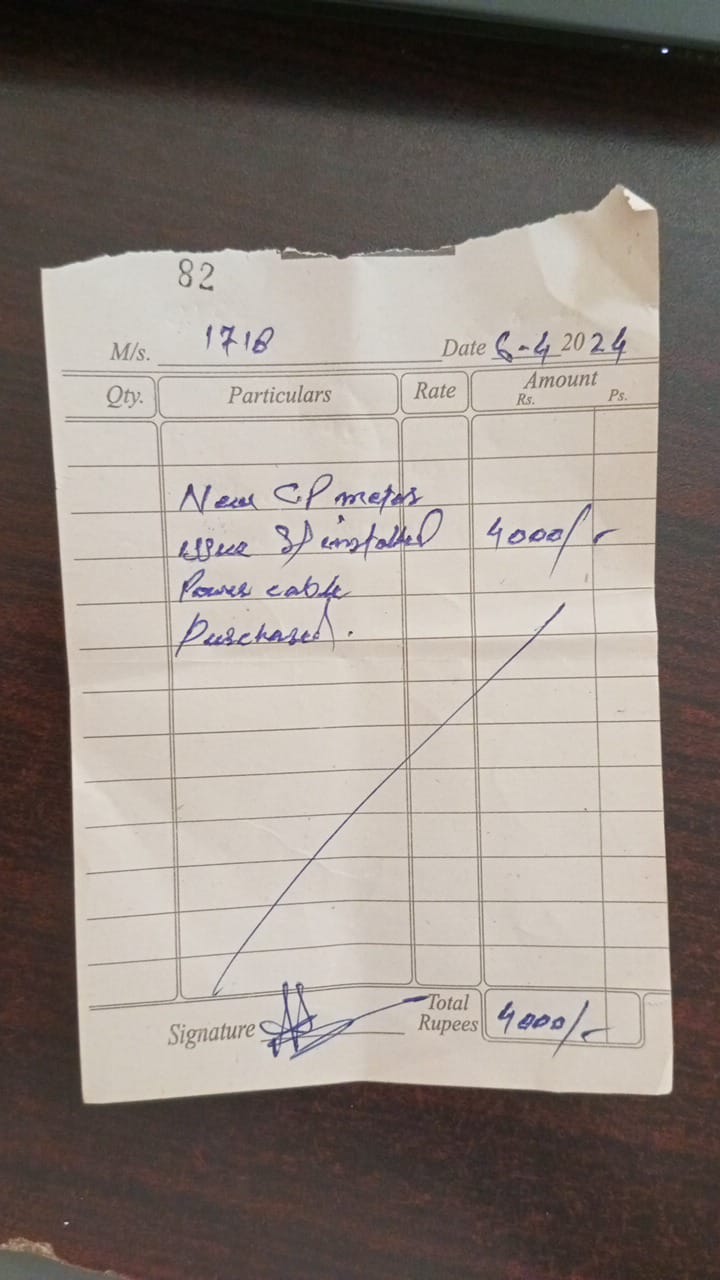 82
M/s. 1718 Date 6-4 2024
Qty. Particulars Rate Amount
Rs. Ps.
New CP
installed 4000/-
Power cable
Purchased.
Signature Total
Rupees 4000/-